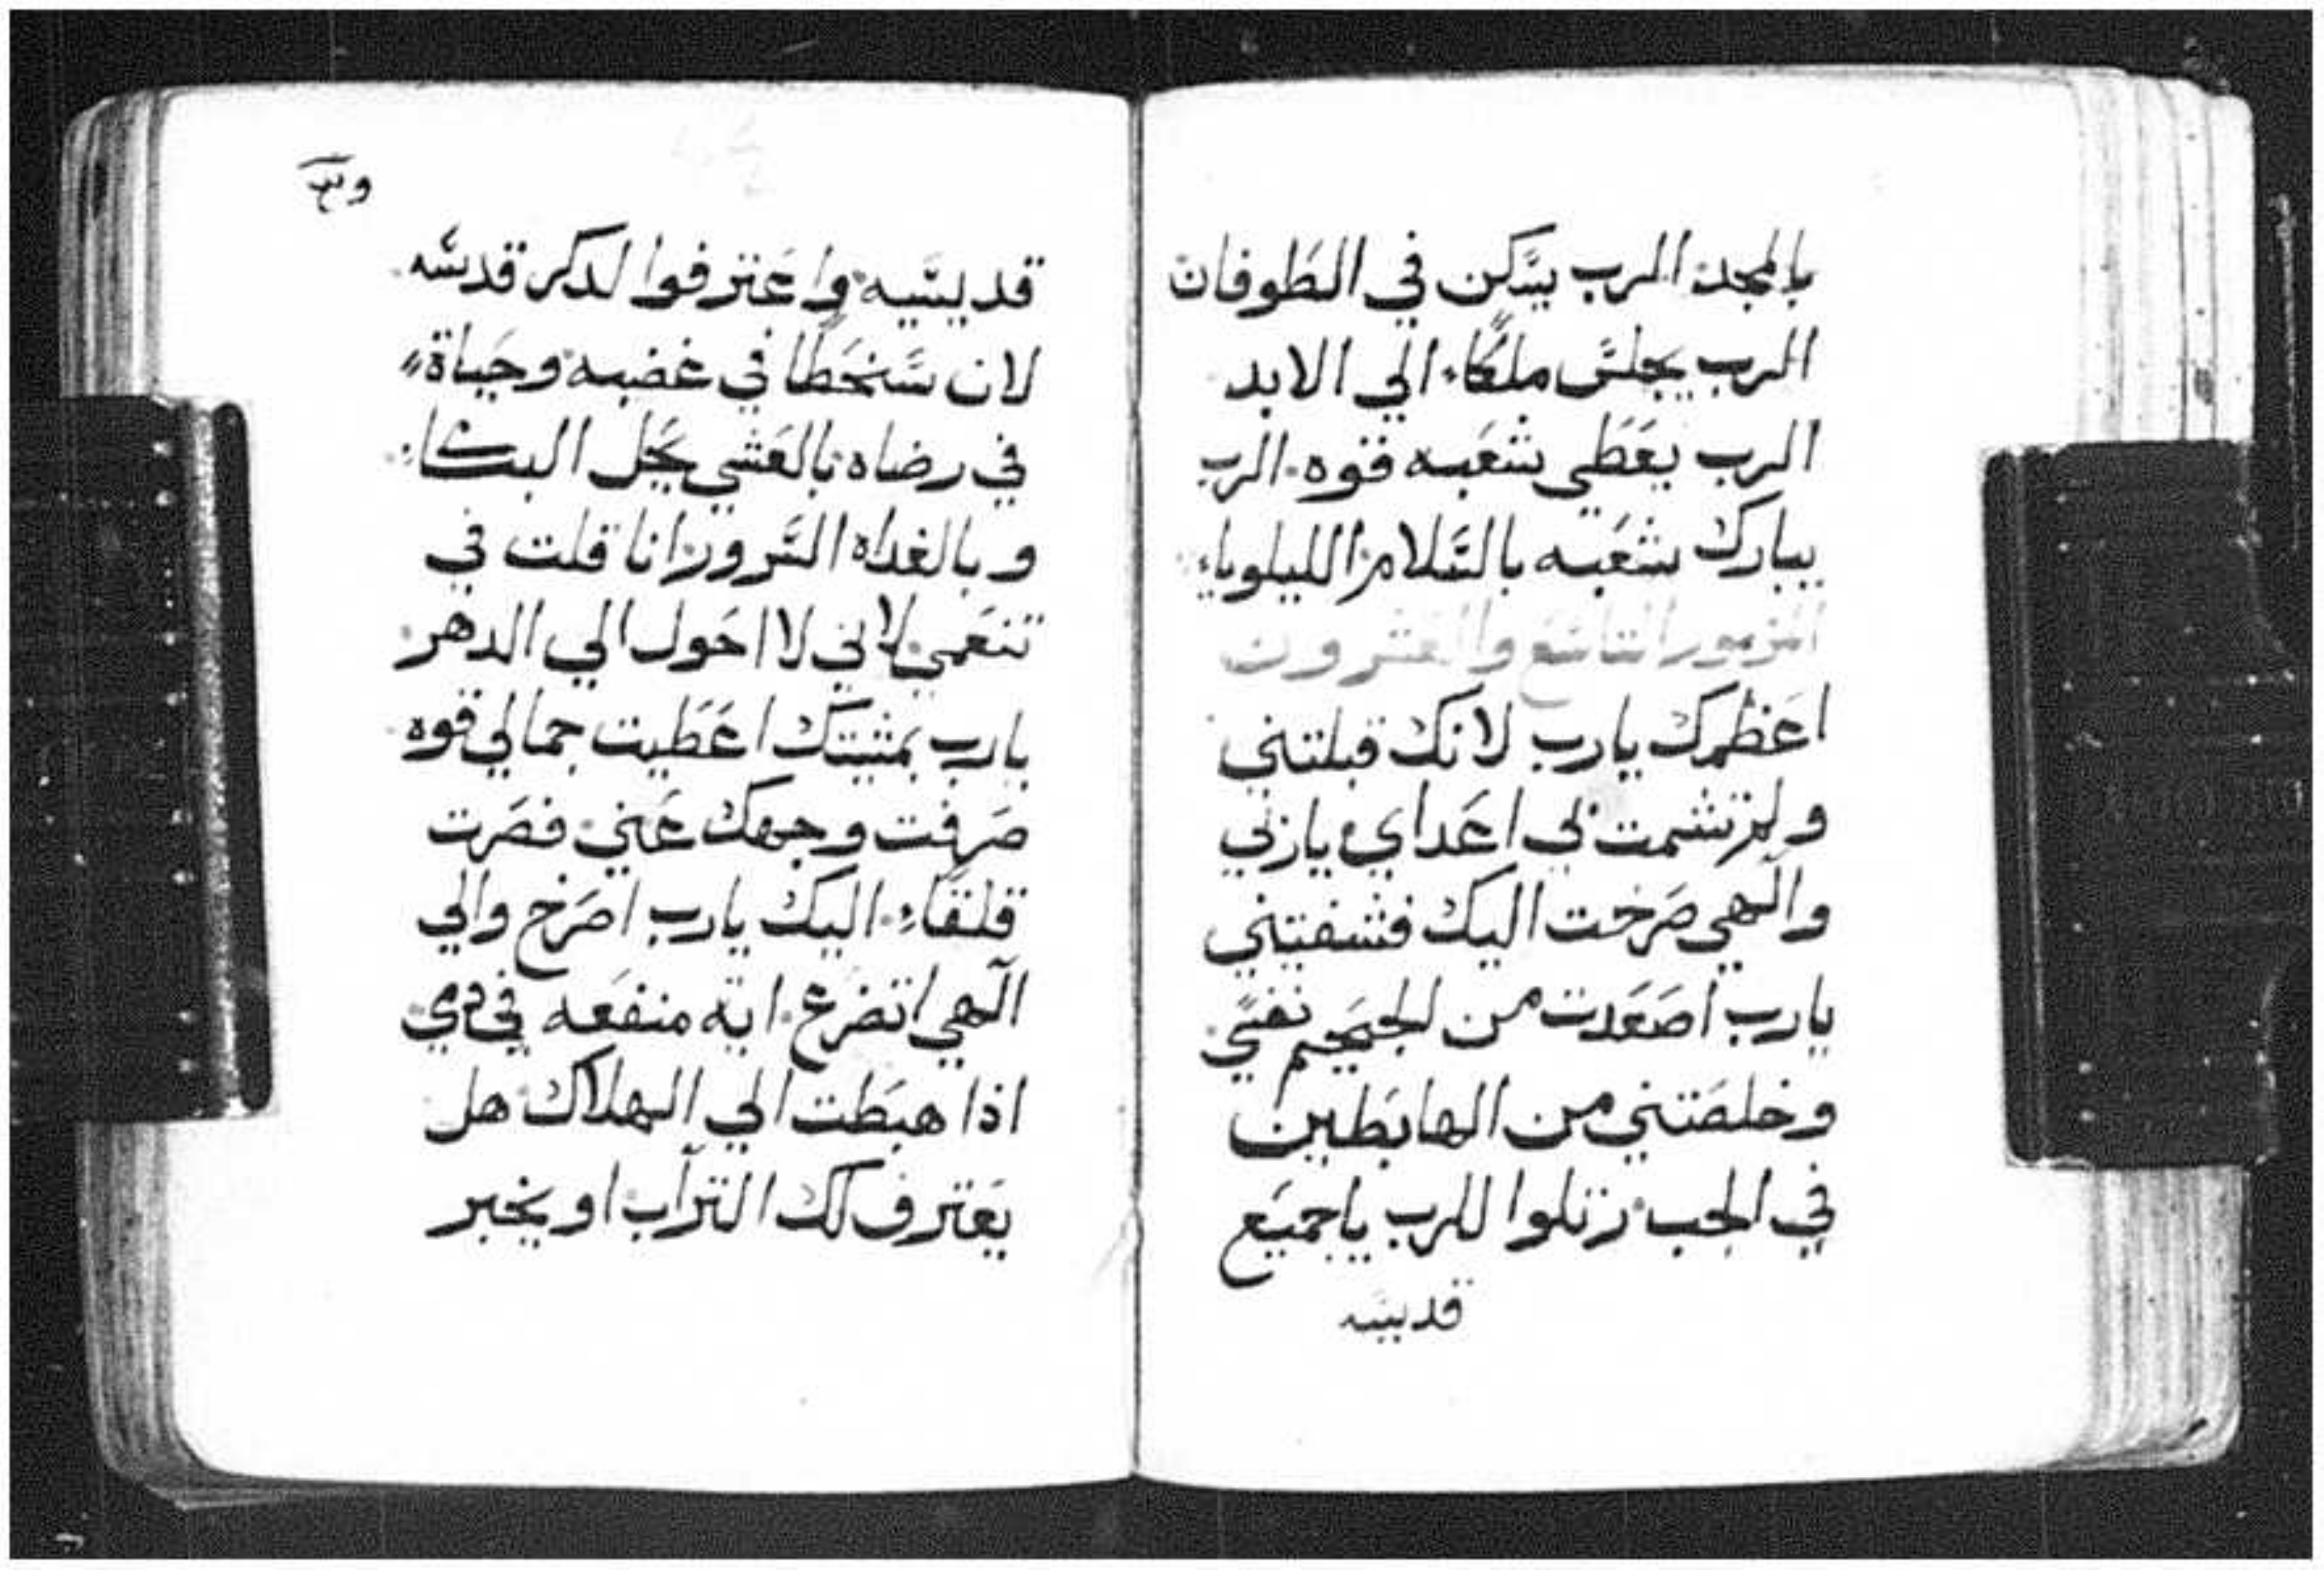 بالمجد الرب يسكن في الطوفان
الرب يجلس ملكاء الي الابد
الرب يعطي شعبه قوه الرب
يبارك شعبه بالسلام الليلوياء
المزمور التاسع والعشرون
اعظمك يارب لانك قبلتني
ولم تشمت بي اعداي ياربي
والهي صرخت اليك فشفيتني
يارب اصعدت من الجحيم نفسي
وخلصتني من الهابطين
في الجب رتلوا للرب ياجميع
قديسيه
قديسيه واعترفوا لدكر قدسه
لان سخطا في غضبه وحياة
في رضاه بالعشي يحل البكاء
وبالغداه السرور انا قلت في
تنعمي لاني لا احول الي الدهر
يارب بمشيتك اعطيت جمالي قوه
صرفت وجهك عني فصرت
قلقاء اليك يارب اصرخ والي
الهي اتضرع ايه منفعه في دمي
اذا هبطت الي الهلاك هل
يعترف لك التراب او يخبر